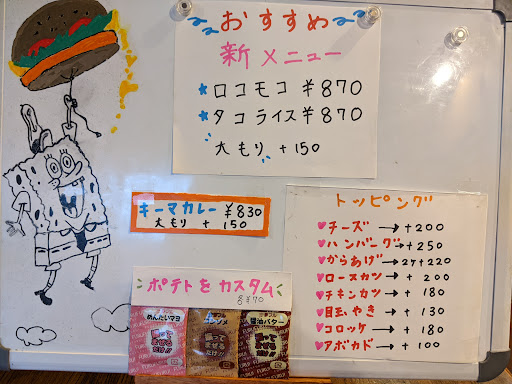 おすすめ
新メニュー
★ロコモコ ¥870
★タコライス ¥870
大もり +150
キーマカレー ¥830
大もり + 150
トッピング
♥チーズ → +200
♥ハンバーグ → +250
♥からあげ → 2ケ+220
♥ロースカツ → + 200
♥チキンカツ → + 180
♥目玉やき → + 130
♥コロッケ → + 180
♥アボカド → + 100
ポテトをカスタム
めんたいマヨ
コンソメ
醤油バター